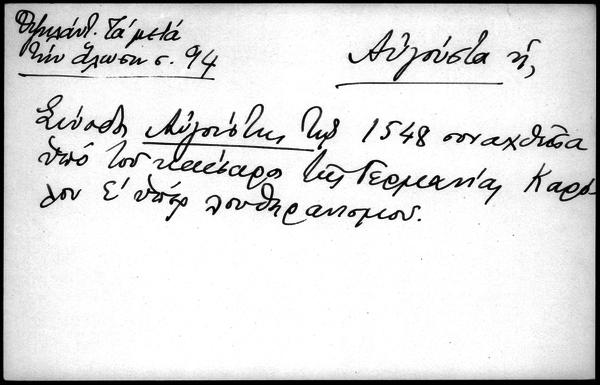 Ὑψηλάντ. Τά μετά
τήν ἅλωσιν σ. 94
Αὐγούστα ἡ,
Σύνοδος Αὐγούστης τῆς 1548 συναχθεῖσα
ὑπό τοῦ καίσαρος τῆς Γερμανίας Καρό-
λου Ε' ὑπέρ λουθηρανισμοῦ.